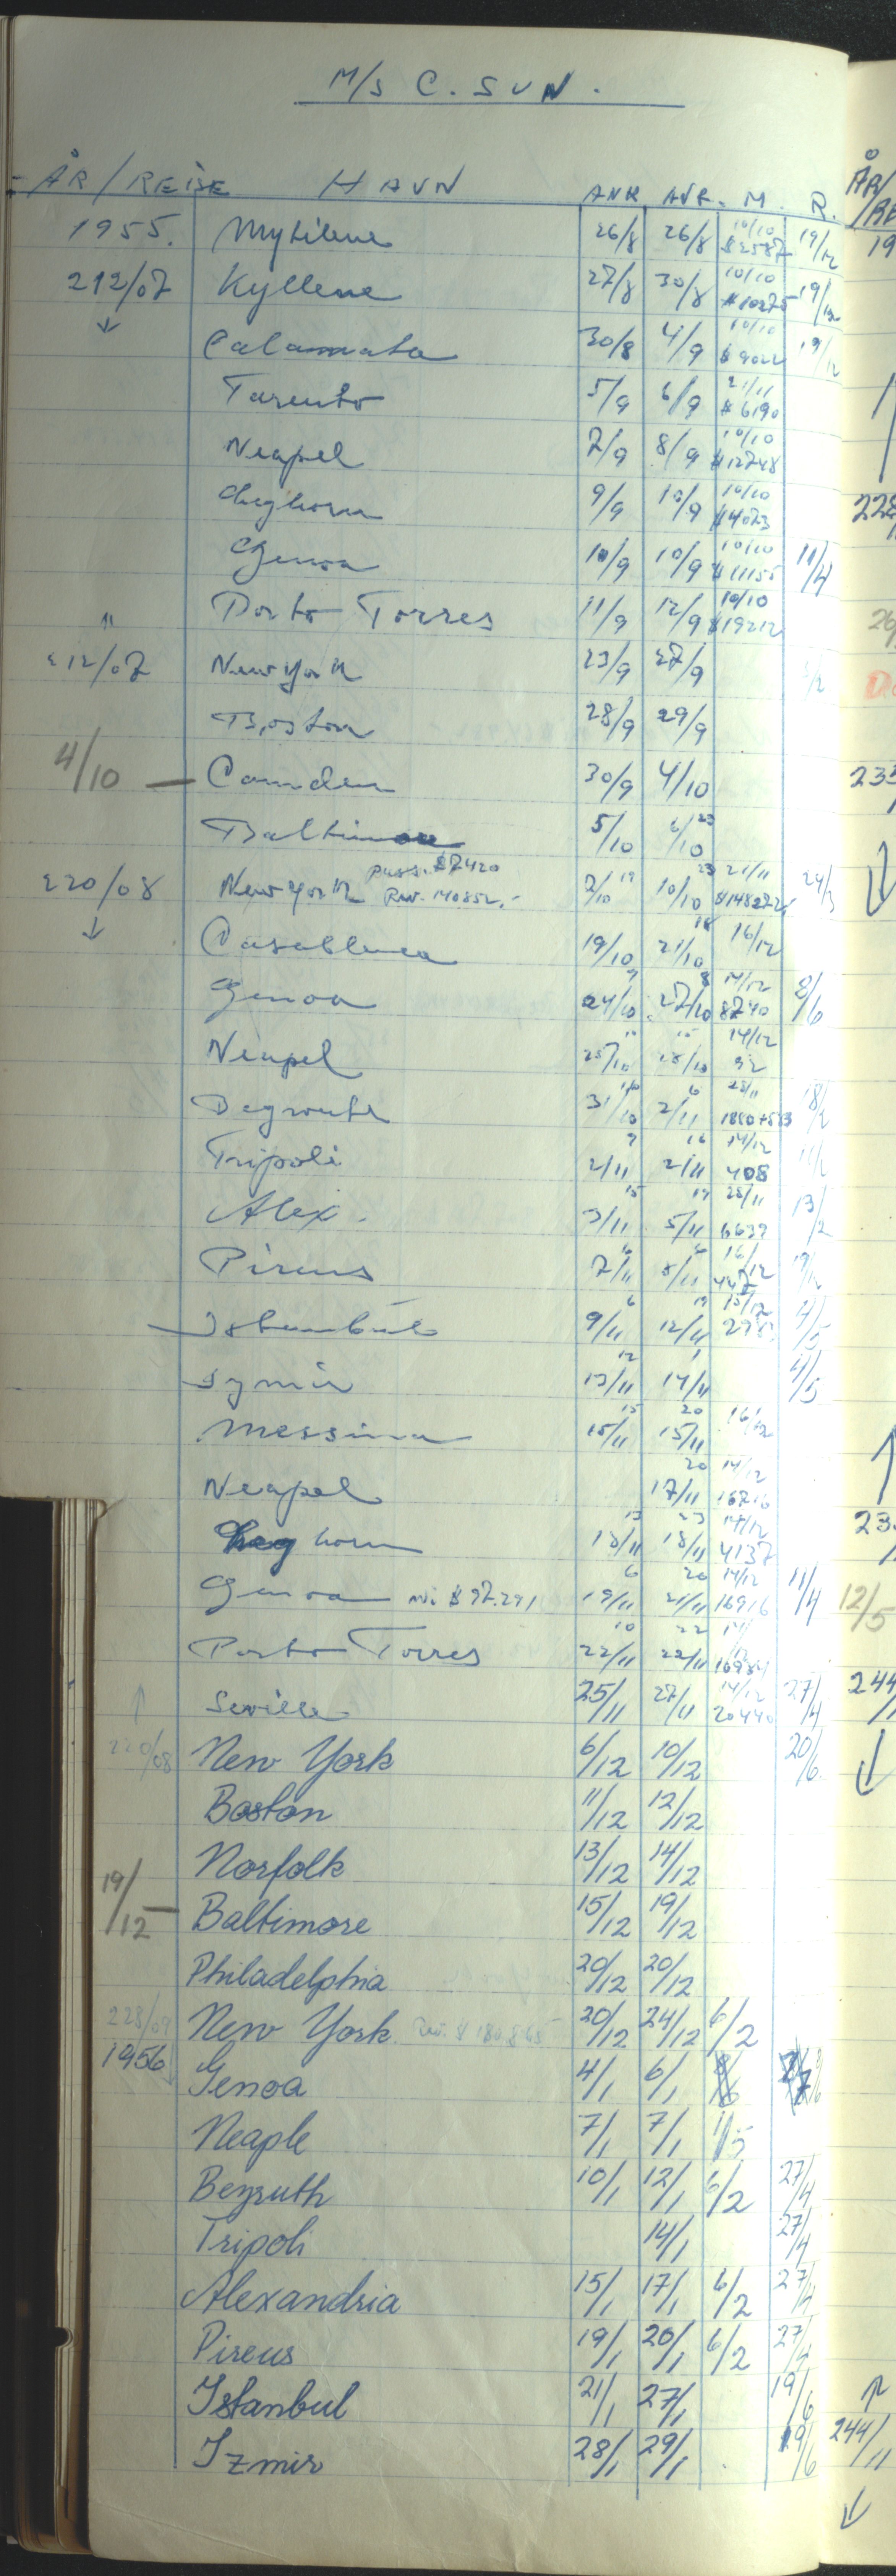 M/S C. SUN.
ÅR/REISE HAVN ANK. AVR. M. R.
1955. Mytilene 26/8 26/8 10/10 $2587 19/12
212/07 Kyllene 27/8 30/8 10/10 $10275 19/12
↓ Calamata 30/8 4/9 10/10 $9022 19/12
Tarento 5/9 6/9 21/11 $6190
Neapel 7/9 8/9 10/10 $12748
Leghorn 9/9 10/9 10/10 $4023
Genoa 10/9 10/9 10/10 $11155 11/4
Porto Torres 11/9 12/9 10/10 $19212
212/07 New York 23/9 27/9
Boston 28/9 29/9
4/10 — Camden 30/9 4/10
Baltimore 5/10 6/10 23
220/08 New York pass. $7420 Rev. 140852.- 7/10 19 10/10 23 21/11 $148272 24/3
↓ Casablanca 19/10 21/10 18 16/12
Genoa 24/10 9 27/10 8 14/12 8740 8/6
Neapel 28/10 18/10 15 14/12 32
Beyrouth 31/10 2/11 6 28/11 1880+583 18/2
Tripoli 2/11 9 2/11 16 14/12 408
Alex. 3/11 15 5/11 19 28/11 6639 13/2
Pireus 7/11 6 8/11 16/12 447 19/12
Istanbul 9/11 6 12/11 19 15/12 4/5
Izmir 13/11 12 14/11 1 4/5
Messina 15/11 15 15/11 20 16/12
Neapel 17/11 20 14/12 16716
Leghorn 18/11 13 18/11 23 14/12 4137
Genoa $97.291 19/11 6 21/11 20 14/12 16916 11/4
Porto Torres 22/11 10 22/11 22 14/12
↑ Seville 25/11 27/11 14/12 20440 27/4
220/08 New York 6/12 10/12 20/6
Boston 11/12 12/12
Norfolk 13/12 14/12
19/12 — Baltimore 15/12 19/12
Philadelphia 20/12 20/12
228/09 New York Rev. $ 20/12 24/12 6/2
1956 Genoa 4/1 6/1
Neaple 7/1 7/1 1/5
Beyruth 10/1 12/1 6/2 27/4
Tripoli 14/1 27/4
Alexandria 15/1 17/1 6/2 27/4
Pireus 19/1 20/1 6/2 27/4
Istanbul 21/1 27/1 19/6
Izmir 28/1 29/1 19/6
ÅR/
19
12/5
244/11
↓
↑
244/11
↓